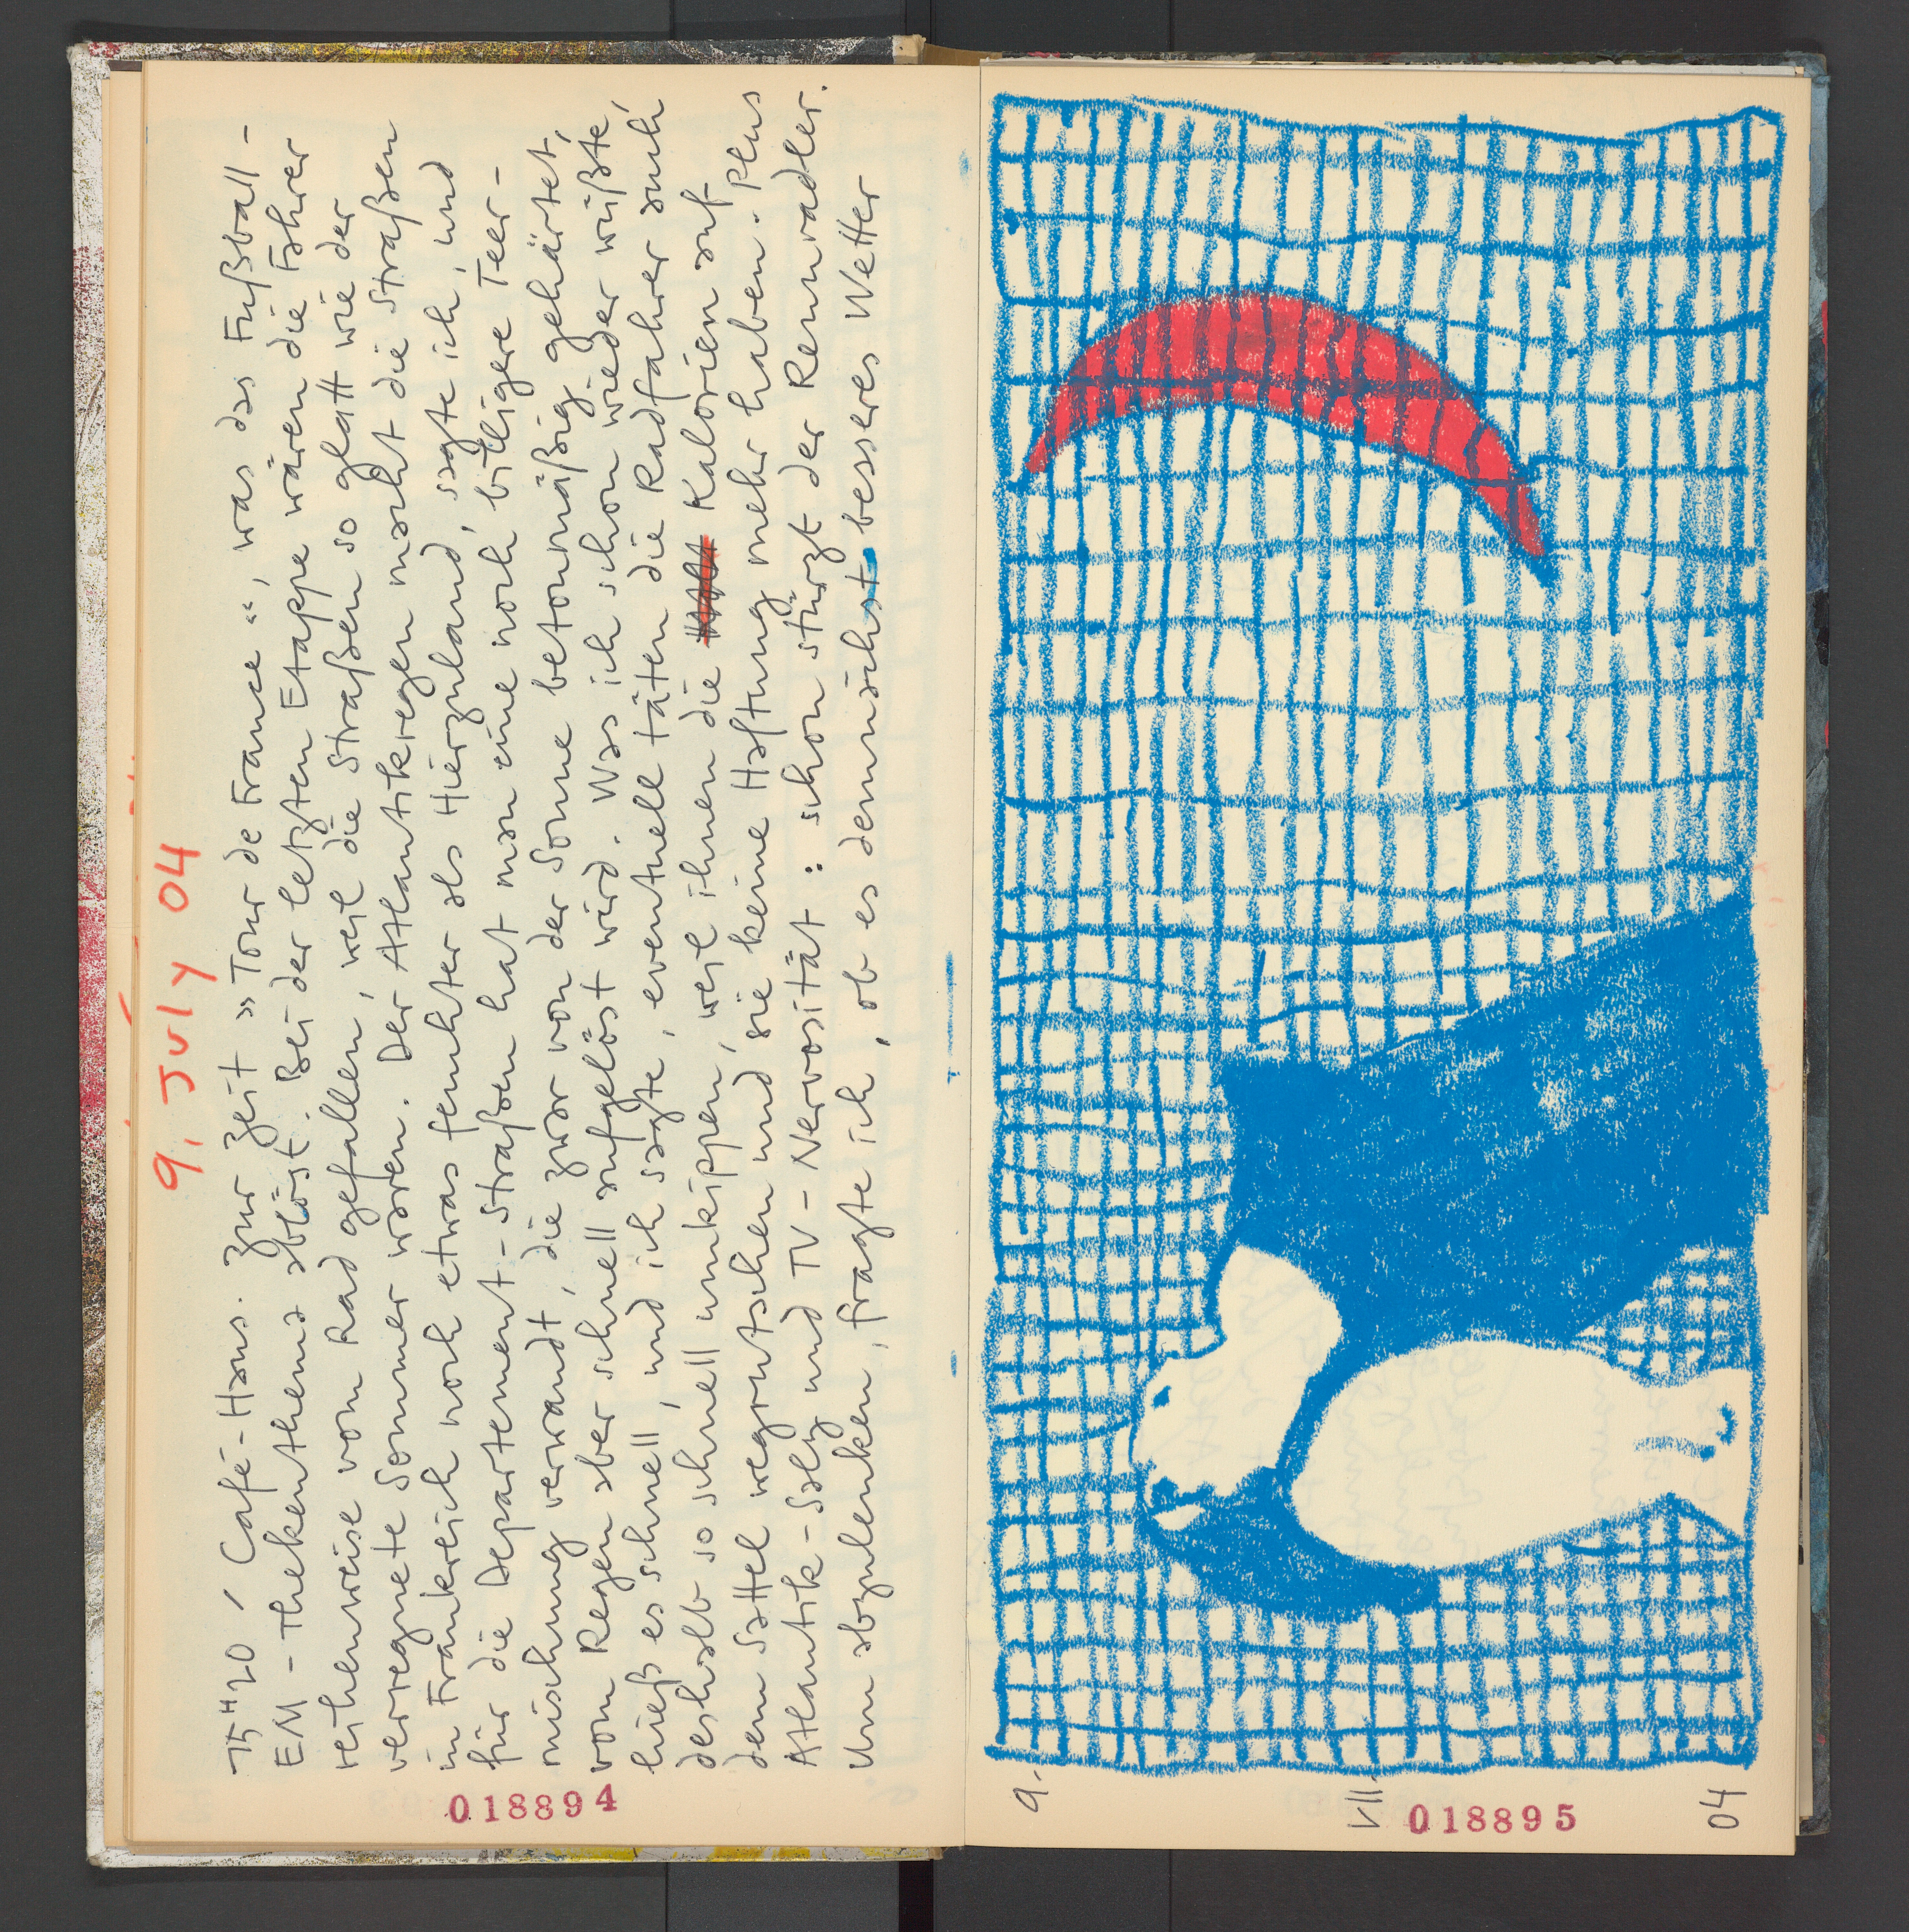 9. July 04
15ʰ20 / Café-Haus. Zur Zeit »Tour de France«, was das Fußball-
EM-Thekenthema ablöst. Bei der letzten Etappe wären die Fahrer
reihenweise vom Rad gefallen, weil die Straßen so glatt wie der
verregnete Sommer wären. Der Atlantikregen macht die Straßen
in Frankreich noch etwas feuchter als Hierzuland, sagte ich, und
für die Departement-Straßen hat man eine noch billigere Teer-
mischung verwandt, die zwar von der Sonne betonmäßig gehärtet,
vom Regen aber schnell aufgelöst wird. Was ich schon wieder wüßte,
ließ es schnell, und ich sagte, eventuell täten die Radfahrer auch
deshalb so schnell umkippen, weil ihnen die Kalorien auf
dem Sattel wegrutschen und sie keine Haftung mehr haben. Plus
Atlantik-Salz und TV-Nervosität: schon stürzt der Rennradler.
Um abzulenken, fragte ich, ob es demnächst besseres Wetter
018894
9.
VII.
04
018895